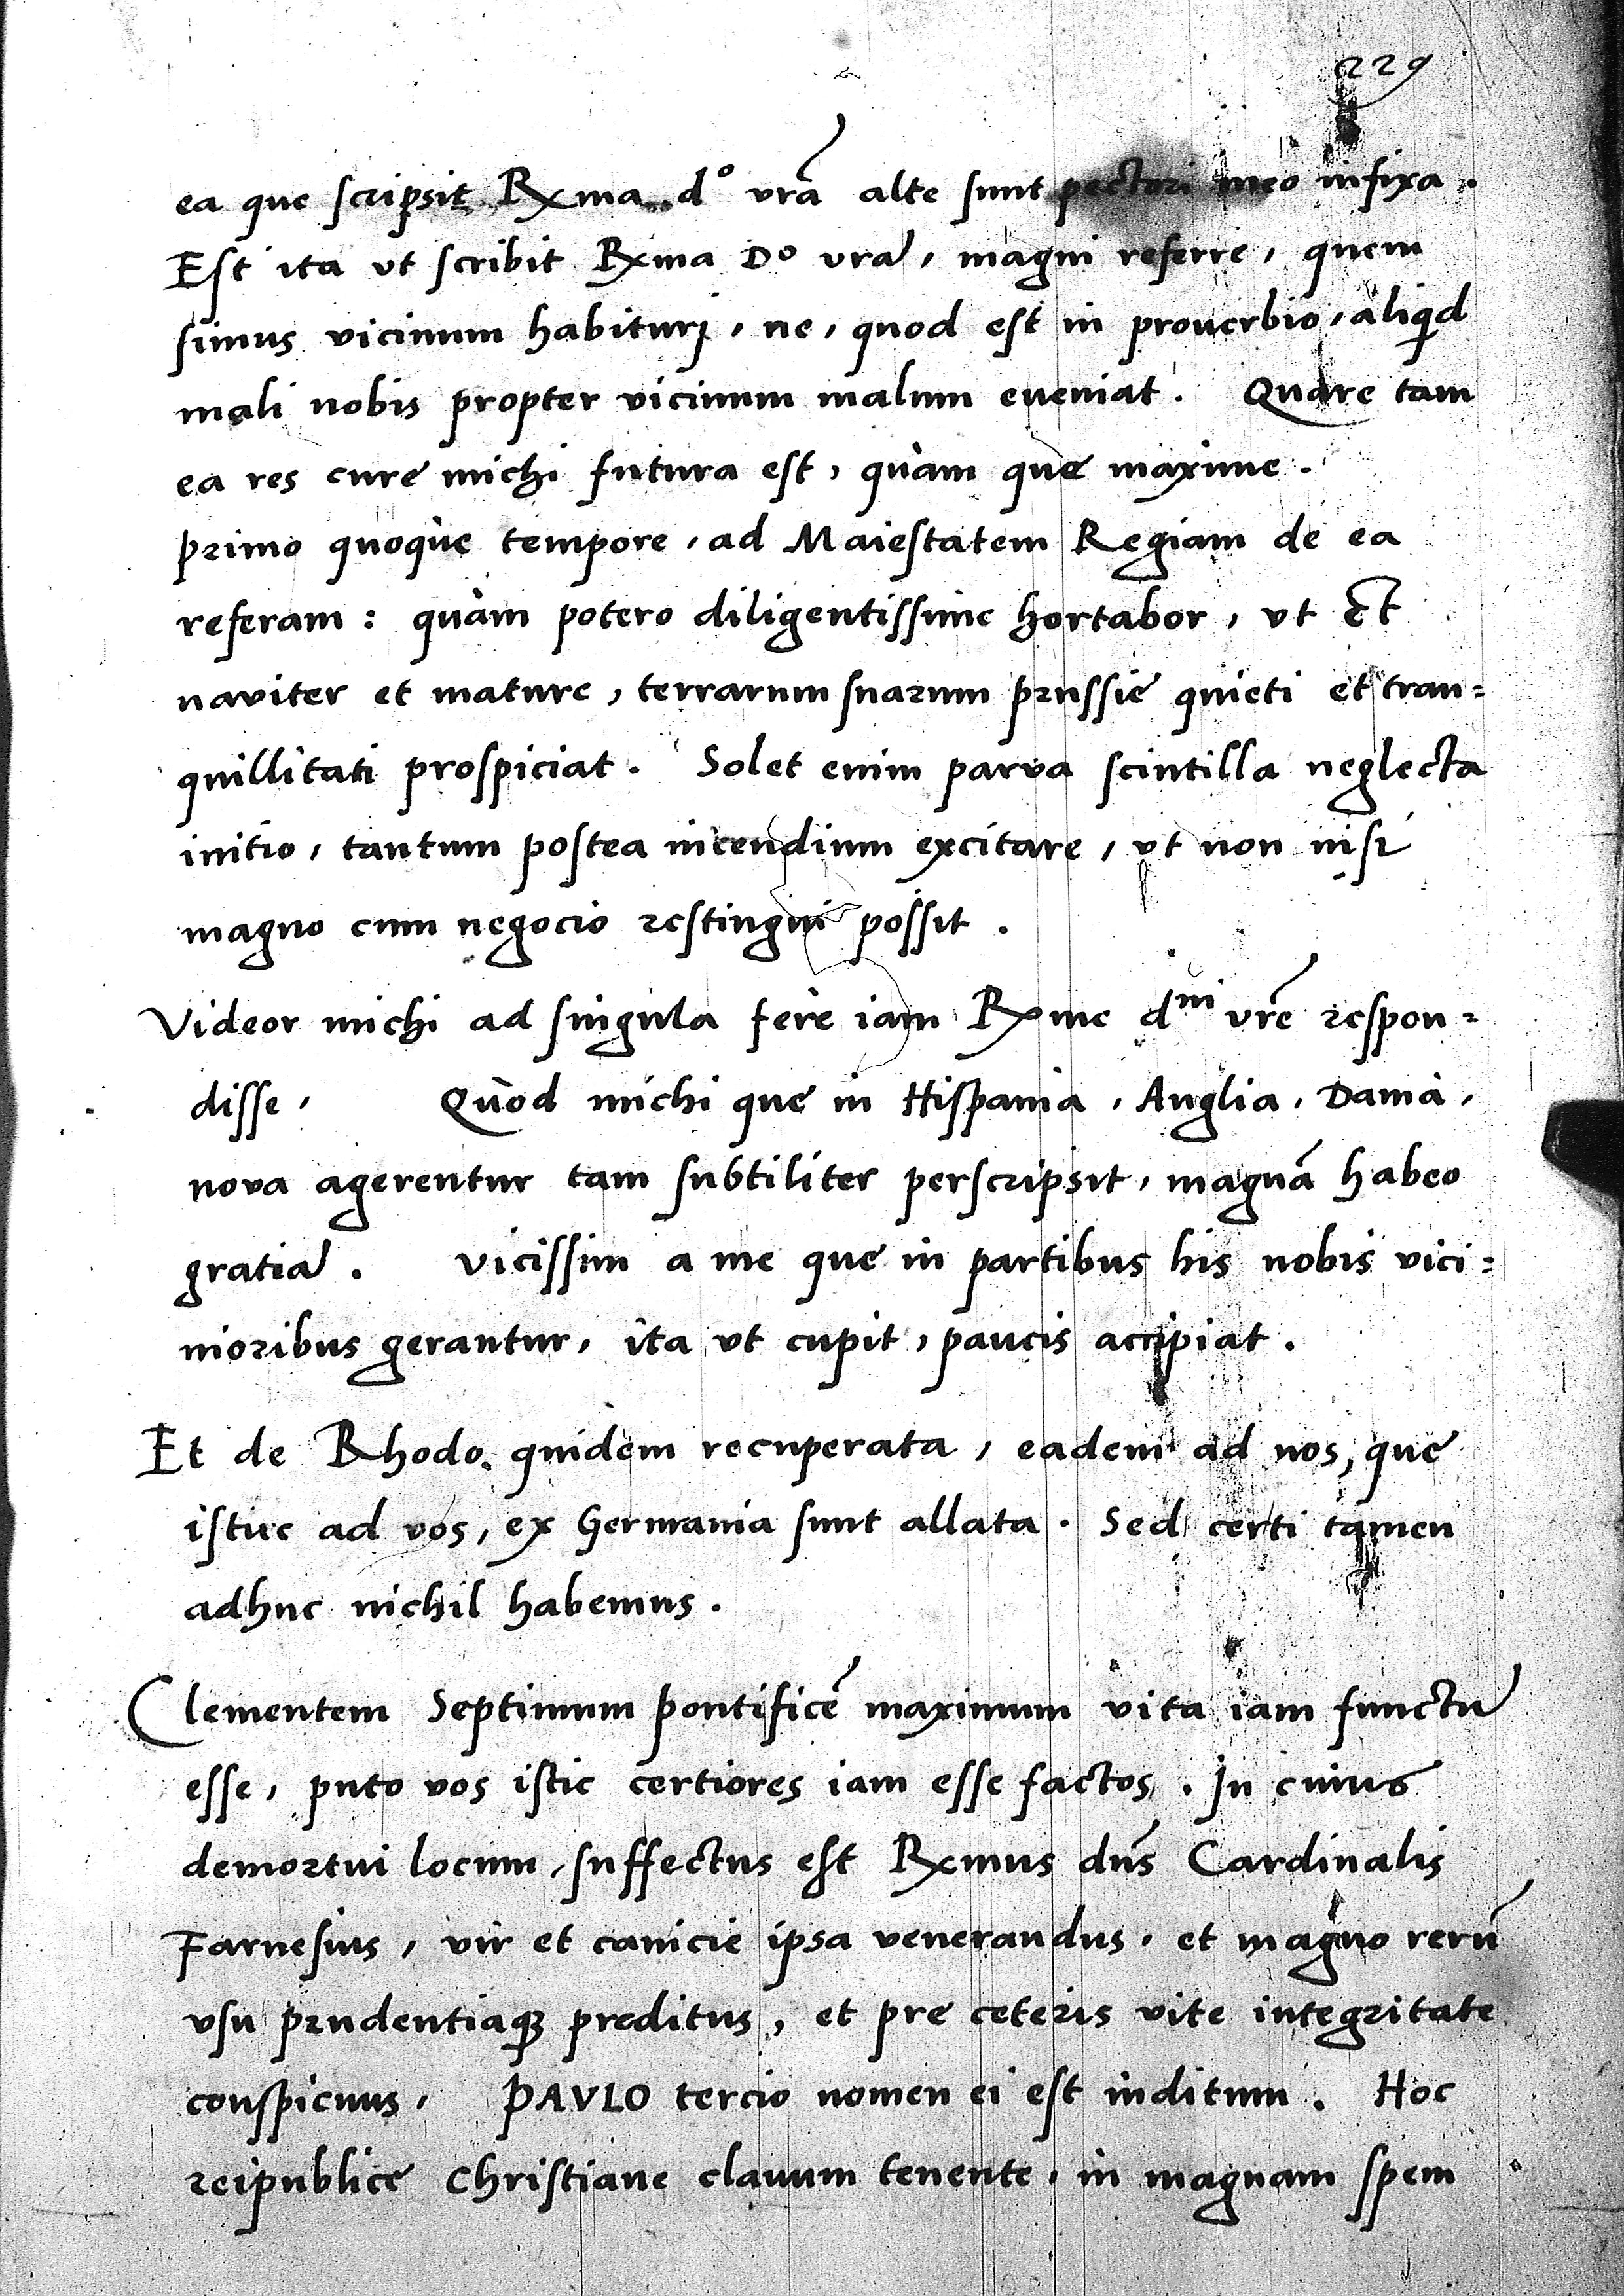 229
ea que scripsit Rxma dº vrã alte sunt pectori meo infixa.
Est ita vt scribit Rxma Dº vrã, magni referre, quem
simus vicinum habiturj, ne, quod est in prouerbio, aliqid
mali nobis propter vicinum malum eueniat. Quare tam
ea res cure michi futura est, quàm que maxime.
primo quoque tempore, ad Maiestatem Regiam de ea
referam: quàm potero diligentissime hortabor, vt Et
naviter et mature, terrarum suarum prussie quieti et tran=
quillitati prospiciat. Solet enim parva scintilla neglecta
initio, tantum postea incendium excitare, vt non nisi
magno cum negocio restingui possit.
Videor michi ad singula ferè iam Rxme dni vrẽ respon=
disse, Quòd michi que in Hispania, Anglia, Dania,
nova agerentur tam subtiliter perscripsit, magnã habeo
gratiã. Vicissim a me que in partibus his nobis vici=
nioribus gerantur, ita vt cupit, paucis accipiat.
Et de Rhodo quidem recuperata, eadem ad nos, que
istuc ad vos, ex Germania sunt allata. Sed certi tamen
adhuc nichil habemus.
Clementem Septimum pontificẽ maximum vita iam functũ
esse, puto vos istic certiores iam esse factos. In cuius
demortui locum, suffectus est Rxmus dñs Cardinalis
Farnesius, vir et canicie ipsa venerandus, et magno rerũ
vsu prudentiaqꝫ preditus, et pre ceteris vite integritate
conspicuus, PAVLO tercio nomen ei est inditum. Hoc
reipublice Christiane clauum tenente, in magnam spem